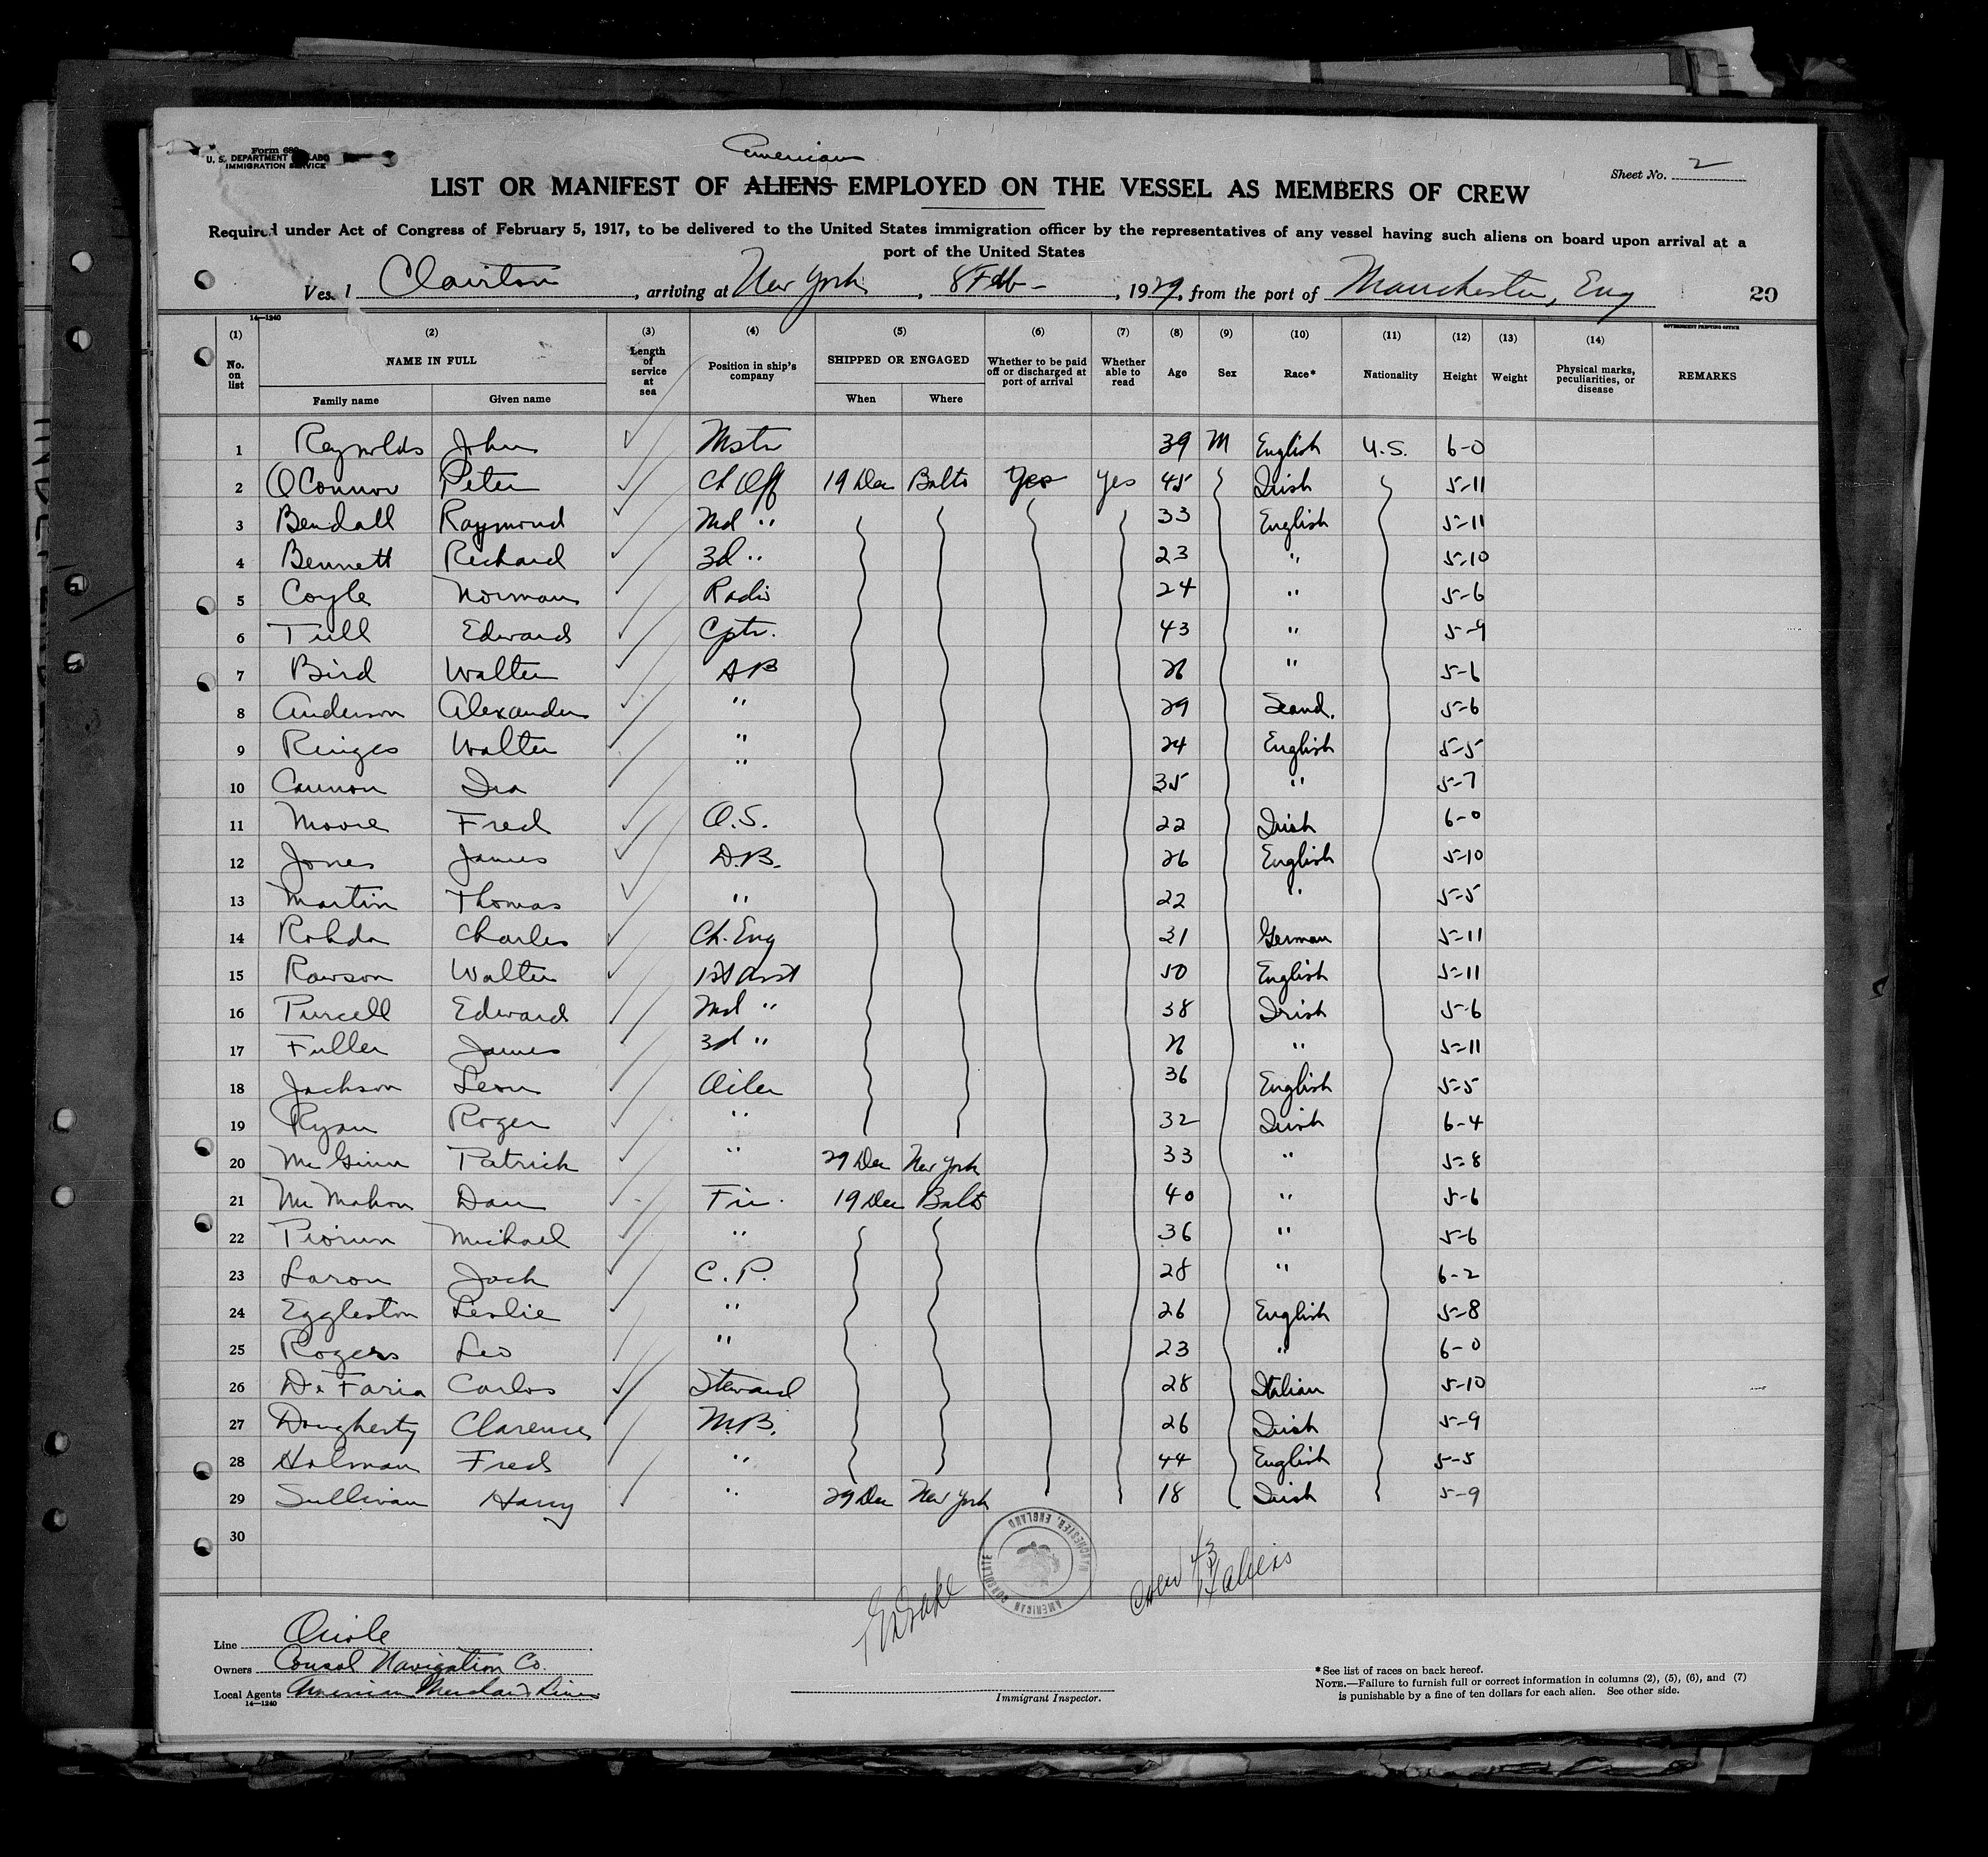 Form 689
U. S. DEPARTMENT OF LABOR
IMMIGRATION SERVICE
American
Sheet No. 2
LIST OR MANIFEST OF ALIENS EMPLOYED ON THE VESSEL AS MEMBERS OF CREW
Required under Act of Congress of February 5, 1917, to be delivered to the United States immigration officer by the representatives of any vessel having such aliens on board upon arrival at a
port of the United States
Vessel Clairton, arriving at New York, 8 Feb-, 1929, from the port of Manchester, Eng 20
14—1240 GOVERNMENT PRINTING OFFICE
(1) (2) (3) (4) (5) (6) (7) (8) (9) (10) (11) (12) (13) (14)
No. on list NAME IN FULL Length of service at sea Position in ship's company SHIPPED OR ENGAGED Whether to be paid off or discharged at port of arrival Whether able to read Age Sex Race* Nationality Height Weight Physical marks, peculiarities, or disease REMARKS
Family name Given name When Where
1 Reynolds John Mstr 39 M English U.S. 6-0
2 O'Connor Peter Ch Off 19 Dec Balto Yes Yes 45 Irish 5-11
3 Bendall Raymond 2nd " 33 English 5-11
4 Bennett Richard 3d " 23 " 5-10
5 Coyle Norman Radio 24 " 5-6
6 Tull Edward Cptr. 43 " 5-9
7 Bird Walter AB 26 " 5-6
8 Anderson Alexander " 29 Scand. 5-6
9 Ringes Walter " 24 English 5-5
10 Cannon Ira " 35 " 5-7
11 Moore Fred O.S. 22 Irish 6-0
12 Jones James D.B. 26 English 5-10
13 Martin Thomas " 22 " 5-5
14 Rohda Charles Ch. Eng 31 German 5-11
15 Rawson Walter 1st Asst 50 English 5-11
16 Purcell Edward 2nd " 38 Irish 5-6
17 Fuller James 3d " 26 " 5-11
18 Jackson Leon Oiler 36 English 5-5
19 Ryan Roger " 32 Irish 6-4
20 McGinn Patrick " 29 Dec New York 33 " 5-8
21 McMahon Dan Fir. 19 Dec Balto 40 " 5-6
22 Piorun Michael " 36 " 5-6
23 Laron Jack C.P. 28 " 6-2
24 Eggleston Leslie " 26 English 5-8
25 Rogers Leo " 23 " 6-0
26 De Faria Carlos Steward 28 Italian 5-10
27 Dougherty Clarence M.B. 26 Irish 5-9
28 Holman Fred " 44 English 5-5
29 Sullivan Harry " 29 Dec New York 18 Irish 5-9
30
AMERICAN CONSULATE MANCHESTER, ENGLAND
Crew 43
Aliens
Line Oriole
Owners Consol Navigation Co.
Local Agents American Merchant Lines
14—1240
Immigrant Inspector.
*See list of races on back hereof.
NOTE.—Failure to furnish full or correct information in columns (2), (5), (6), and (7)
is punishable by a fine of ten dollars for each alien. See other side.